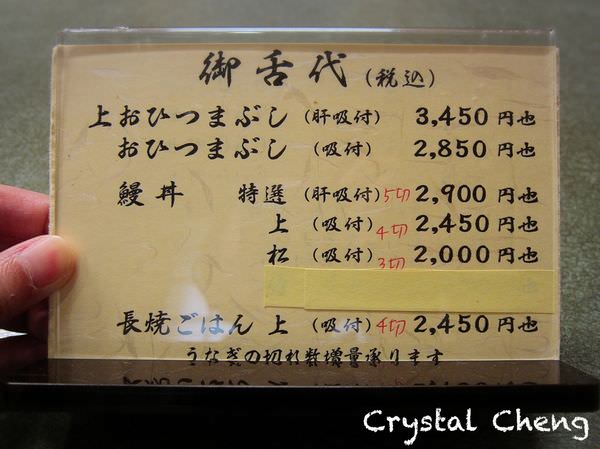 御舌代(税込)
上おひつまぶし(肝吸付) 3,450円也
おひつまぶし(吸付) 2,850円也
鰻丼 特選(肝吸付)5切 2,900円也
上(吸付)4切 2,450円也
松(吸付)3切 2,000円也
長焼ごはん 上(吸付)4切 2,450円也
うなぎの切れ数増量承ります
Crystal Cheng